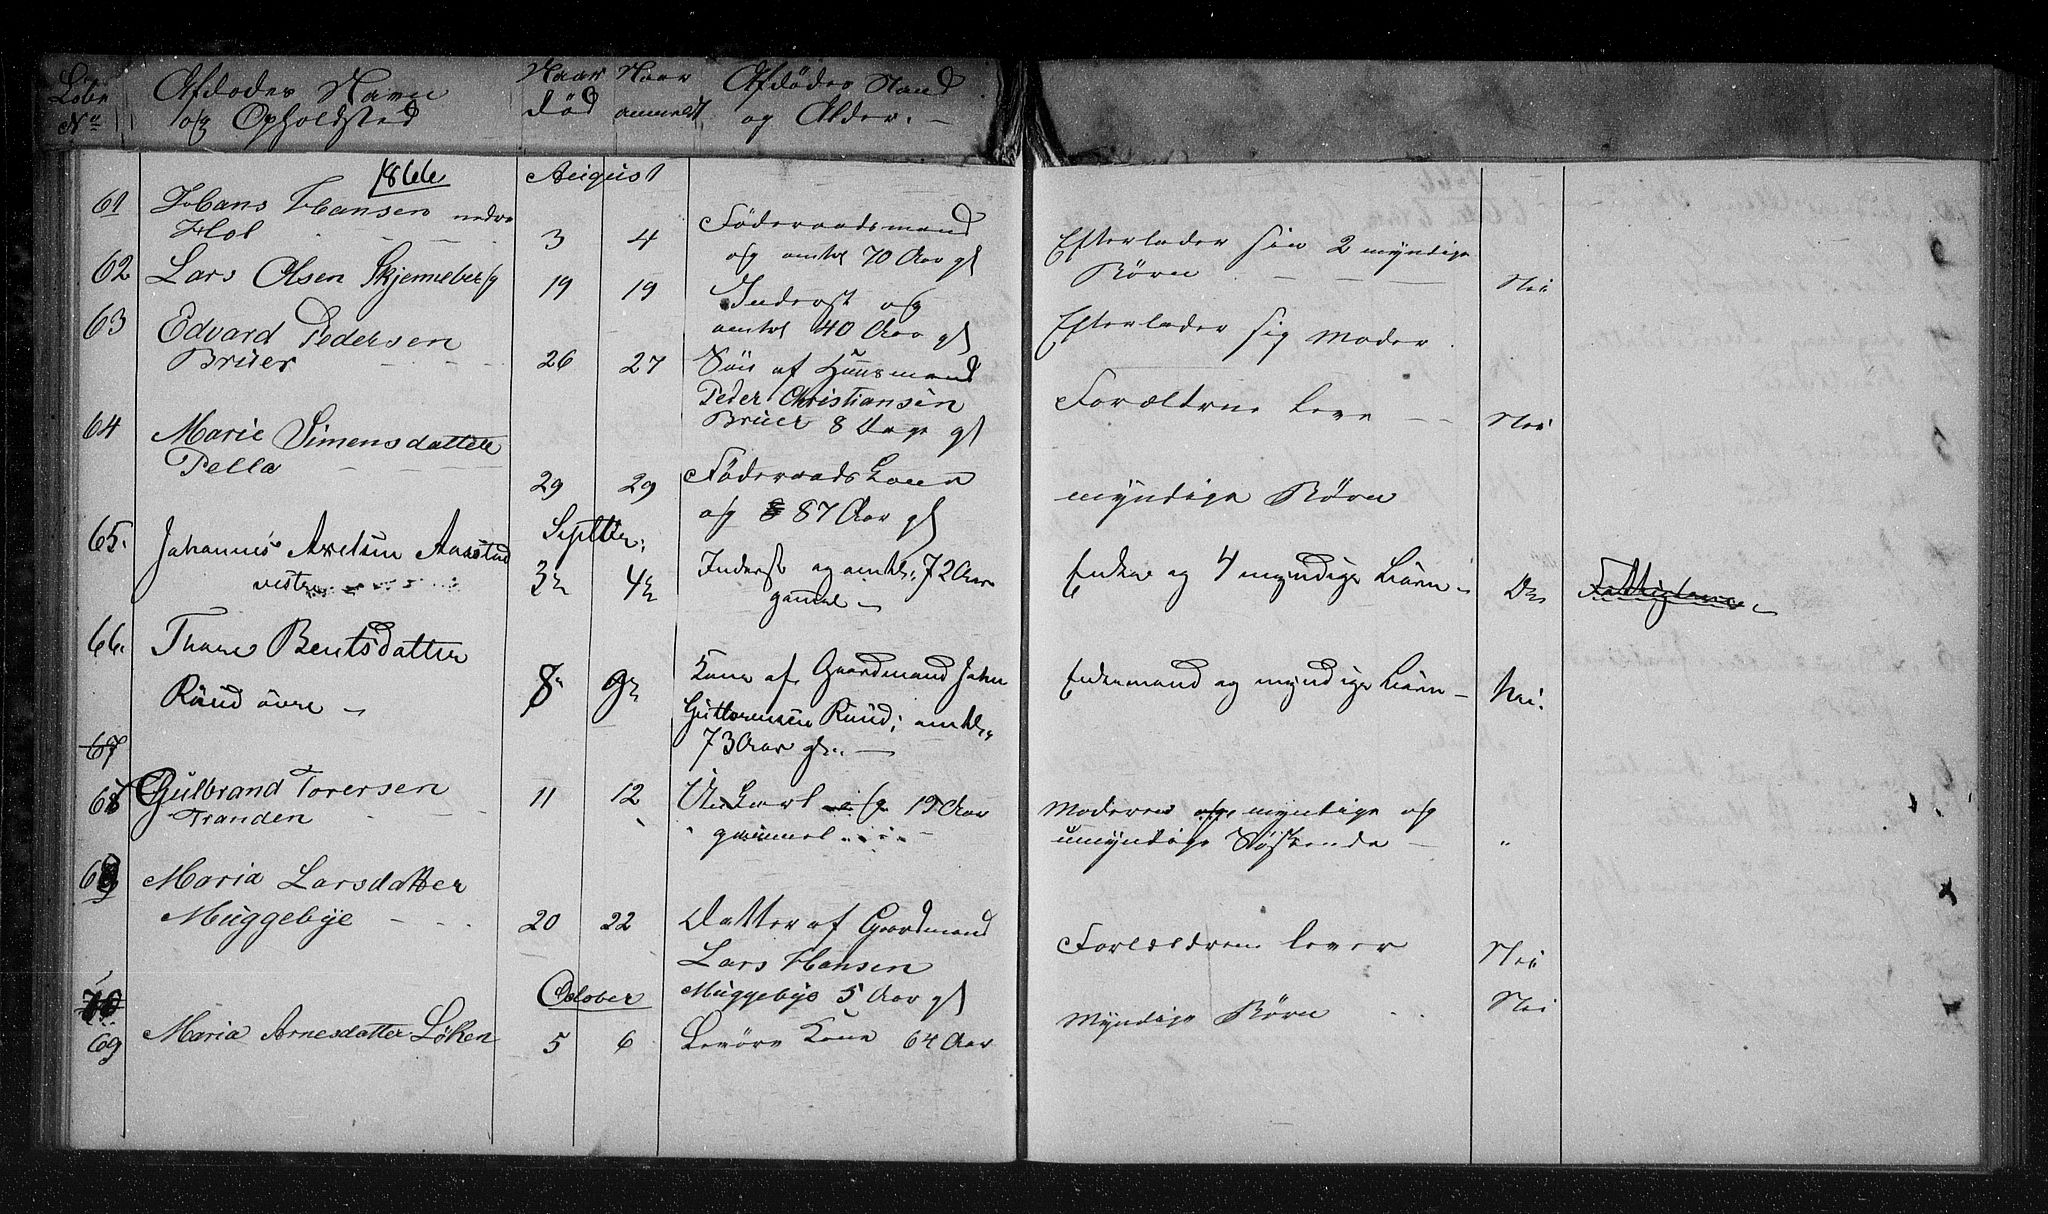 Løbe
No
Afdødes Navn
og Opholdsted
Naar
død
Naar
anmeldt
Afdødes Stand
og Alder. -
1866
August
61
Hans Hansen nedre
Hol
3
4
Föderaadsmand
og omtr 70 Aar gl
Efterlader sin 2 myndige
Börn
Nei
62
Lars Olsen Skjenneberg
19
19
Inderst og
omtr 40 Aar gl
Efterlader sig Moder
63
Edvard Pedersen
Bruer
26
27
Sön af Huusmand
Peder Christiansen
Bruer 8 Dage gl
Forældrene leve
Nei
64
Marie Simensdatter
Pella
29
29
Föderaads Kone
og 87 Aar gl
myndige Börn
Septbr:
65.
Johannes Axelsen Aarstad
vestre
3
4
Inderst og omtr. 72 Aar
gamel -
Enke og 4 myndige Börn -
Do
Fattiglem -
66.
Thore Bentsdatter
Ruud övre -
8
9
Kone af Gaardmand John
Guttormsen Ruud; omtr.
73 Aar gl. -
Enkemand og myndige Börn -
Nei.
67
67
Gulbrand Torersen
Tranden
11
12
Ungkarl og 19 Aar
gammel
Moderen og myndige og
umyndige Søskende -
"
68
Maria Larsdatter
Muggebye
20
22
Datter af Gaardmand
Lars Hansen
Muggebye 5 Aar gl
Forældrene lever
Nei
October
70
69
Maria Arnesdatter Löken
5
6
Kone 64 Aar
Myndige Börn
Nei